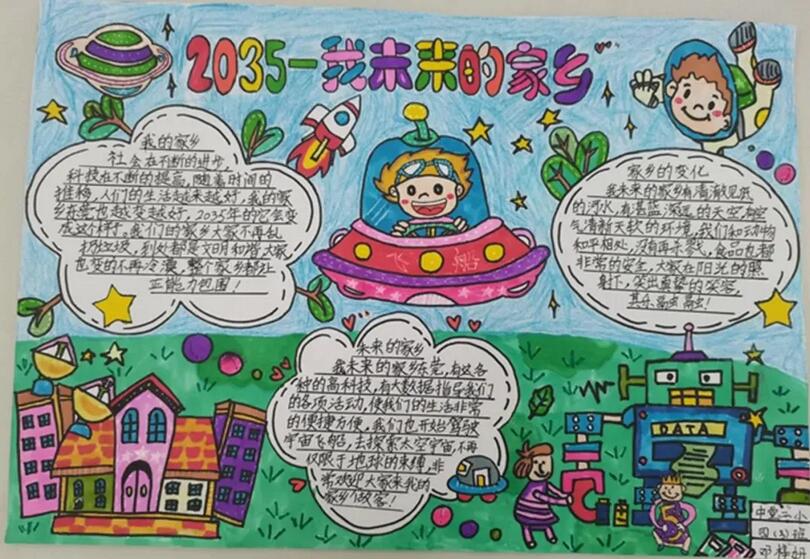 2035—我未来的家乡
我的家乡
社会在不断的进步,
科技在不断的提高,随着时间的
推移,人们的生活越来越好,我的家
乡东莞也越变越好,2035年的它会变
成这个样子,我们的家乡大家不再乱
扔垃圾,到处都是文明和谐,大家
也变的不再冷漠,整个家乡都让
正能力包围!
飞船
家乡的变化
我未来的家乡有清澈见底
的河水,有湛蓝深远的天空,有空
气清新天软的环境,我们和动物
和平相处,没有再杀戮,食品也都
非常的安全,大家在阳光的照
射下,笑出真挚的笑容,
其乐融融!
未来的家乡
我未来的家乡东莞,有这各
种的高科技,有大数据指导我们
的各项活动,使我们的生活非常
的便捷方便,我们也开始驾驶
宇宙飞船,去探索太空宇宙,不再
仅限于地球的束缚,非
常欢迎大家来我的
家乡做客!
DATA
5
中堂二小
四(3)班
邓梓